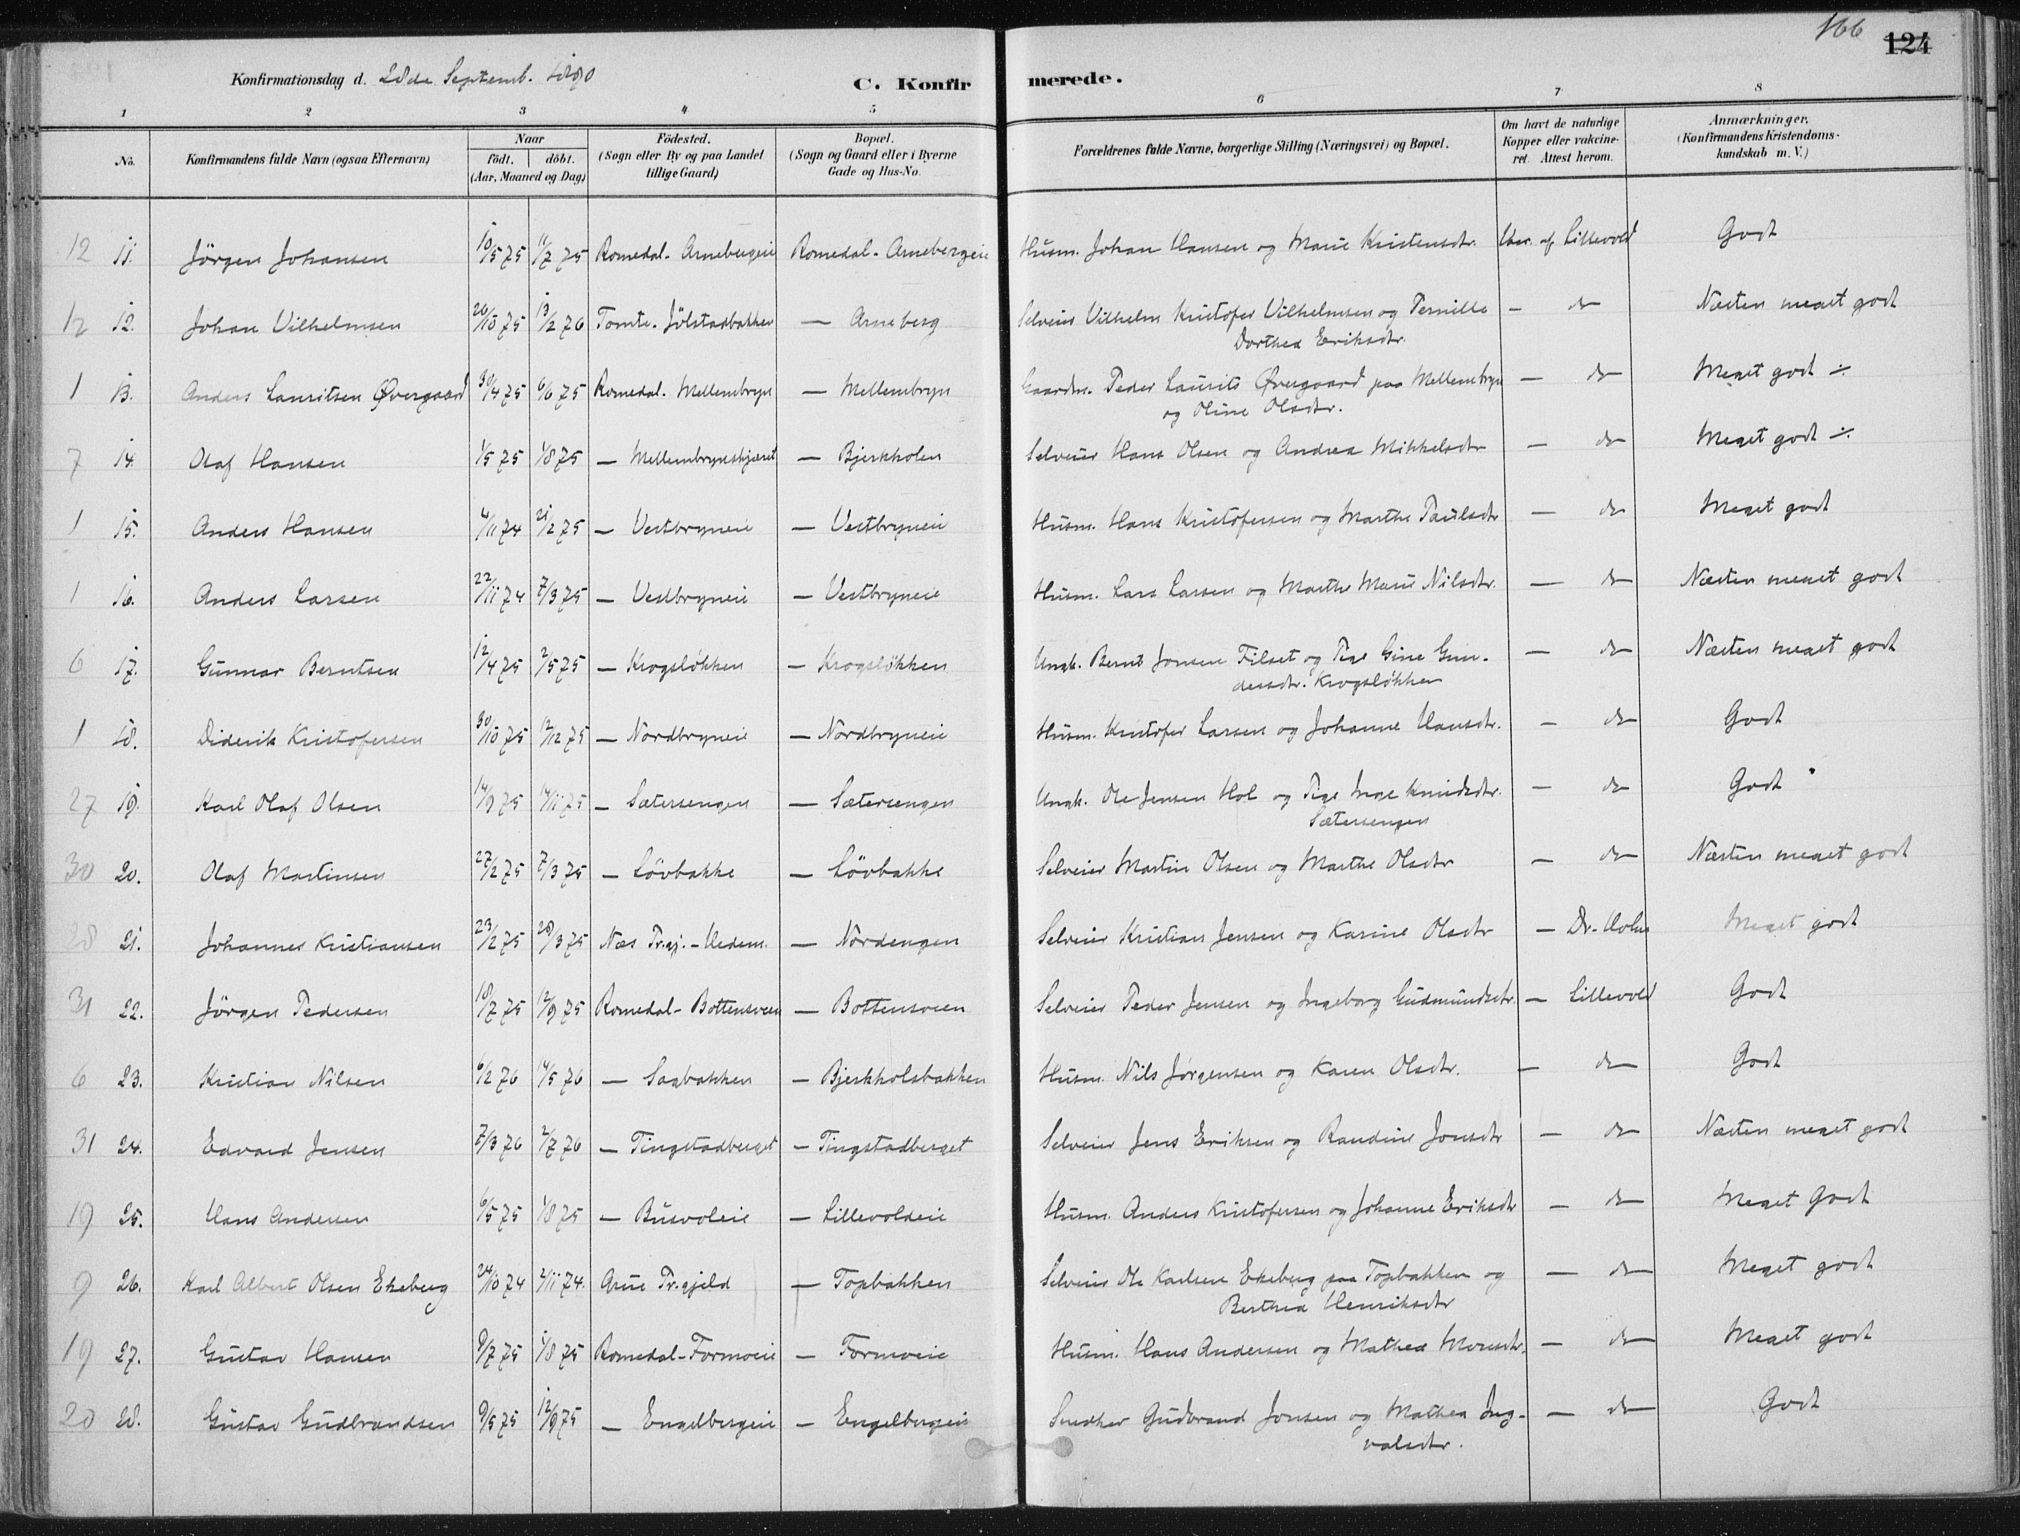 166
124
Konfirmationsdag d. 28de Septemb. 1890
C. Konfirmerede.
1 2 3 4 5 6 7 8
No.
Konfirmandens fulde Navn (ogsaa Efternavn)
Naar
født. døbt.
(Aar, Maaned og Dag)
Fødested.
(Sogn eller By og paa Landet
tillige Gaard)
Bopæl.
(Sogn og Gaard eller i Byerne
Gade og Hus-No.
Forældrenes fulde Navne, borgerlige Stilling (Næringsvei) og Bopæl.
Om havt de naturlige
Kopper eller vakcine-
ret. Attest herom.
Anmærkninger.
(Konfirmandens Kristendoms-
kundskab m. V.)
12 11. Jörgen Johansen 10/5 75 11/7 75 Romedal. Arnebergeie Romedal. Arnebergeie Husm. Johan Hansen og Marie Kristensdtr. Vac. af Lillevold Godt
12 12. Johan Vilhelmsen 26/10 75 13/2 76 Tomte. Jölstadbakken — Arneberg Selveier Vilhelm Kristofer Vilhelmsen og Pernille — do Næsten meget godt
Dorthea Eriksdtr.
1 13. Anders Lauritsen Øvergaard 30/4 75 6/6 75 Romedal. Mellembryn — Mellembryn Gaardm. Peder Laurits Øvergaard paa Mellembryn — do Meget godt ⁒
og Oline Olsdtr.
7 14. Olaf Hansen 1/5 75 1/8 75 — Mellembrynskjæret — Bjerkholen Selveier Hans Olsen og Andrea Mikkelsdtr — do Meget godt ⁒
1 15. Anders Hansen 4/11 74 21/2 75 — Vestbryneie — Vestbryneie Husm. Hans Kristofersen og Marthe Paulsdtr — do Meget godt
1 16. Anders Larsen 22/11 74 7/3 75 — Vestbryneie — Vestbryneie Husm. Lars Larsen og Marthe Marie Nilsdtr. — do Næsten meget godt
6 17. Gunnar Berntsen 12/4 75 2/5 75 — Krogsløkken — Krogsløkken Ungk. Bernt Jonsen Filset og Pige Gine Gun- — do Næsten meget godt
dersdtr. Krogsløkken
1 18. Diderik Kristofersen 30/10 75 12/12 75 — Nordbryneie — Nordbryneie Husm. Kristofer Larsen og Johanne Hansdtr. — do Godt
27 19. Karl Olaf Olsen 14/9 75 14/11 75 — Sætersengen — Sætersengen Ungk. Ole Jensen Hol og Pige Inge Knudsdtr. — do Godt
Sætersengen
30 20. Olaf Martinsen 27/2 75 7/3 75 — Lövbakke — Lövbakke Selveier Martin Olsen og Marthe Olsdtr — do Næsten meget godt
28 21. Johannes Kristiansen 23/2 75 28/3 75 Næs Pr.gj. - Hedem. — Nordengen Selveier Kristian Jensen og Karine Olsdtr — Dr. Holm Meget godt
31 22. Jörgen Pedersen 18/7 75 12/9 75 Romedal - Bottensveen — Bottensveen Selveier Peder Jensen og Ingeborg Gudmundsdtr. — Lillevold Godt
6 23. Kristian Nilsen 6/2 76 14/5 76 — Sagbakken — Bjerkholsbakken Husm. Nils Jørgensen og Karen Olsdtr. — do Godt
31 24. Edvard Jensen 7/3 76 2/7 76 — Tingstadberget — Tingstadberget Selveier Jens Eriksen og Randine Jonsdtr — do Næsten meget godt
19 25. Hans Andersen 6/5 75 1/8 75 — Busvoleie — Lillevoldeie Husm. Anders Kristofersen og Johanne Eriksdtr — do Meget Godt
9 26. Karl Albert Olsen Ekeberg 24/10 74 2/11 74. Arne Pr.gjeld — Topbakken Selveier Ole Karlsen Ekeberg paa Topbakken og — do Meget godt
Berthea Henriksdtr
19 27. Gustav Hansen 9/7 75 1/8 75 Romedal - Formoeie — Formoeie Husm. Hans Andersen og Mathea Monsdtr. — do Meget godt
20 28. Gustav Gudbrandsen 9/5 75 12/9 75 — Engelbergeie — Engelbergeie Snedker Gudbrand Jonsen og Mathea Ing- — do Godt
valsdtr.